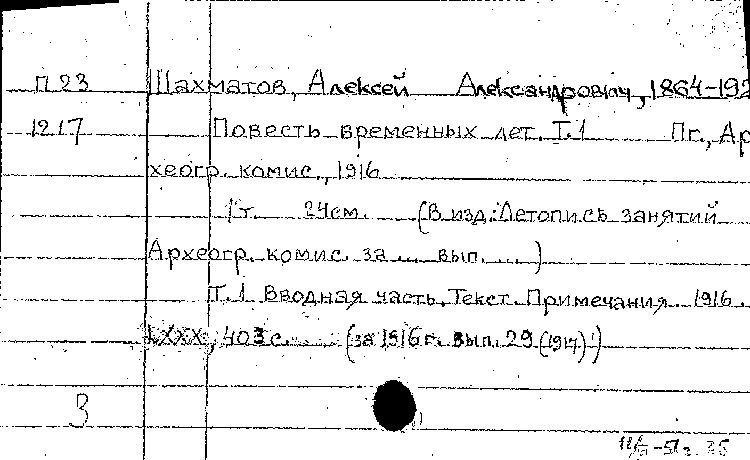 П 23 Шахматов, Алексей Александрович, 1864-192
1217 Повесть временных лет. Т.1 Пг., Ар
хеогр. комис., 1916
1 т. 24см. (В изд.: Летопись занятий
Археогр. комис. за ... вып. ...)
Т.1 Вводная часть. Текст. Примечания. 1916.
LXXX, 403 с. (за 1916 г. вып. 29 (1917).)
3